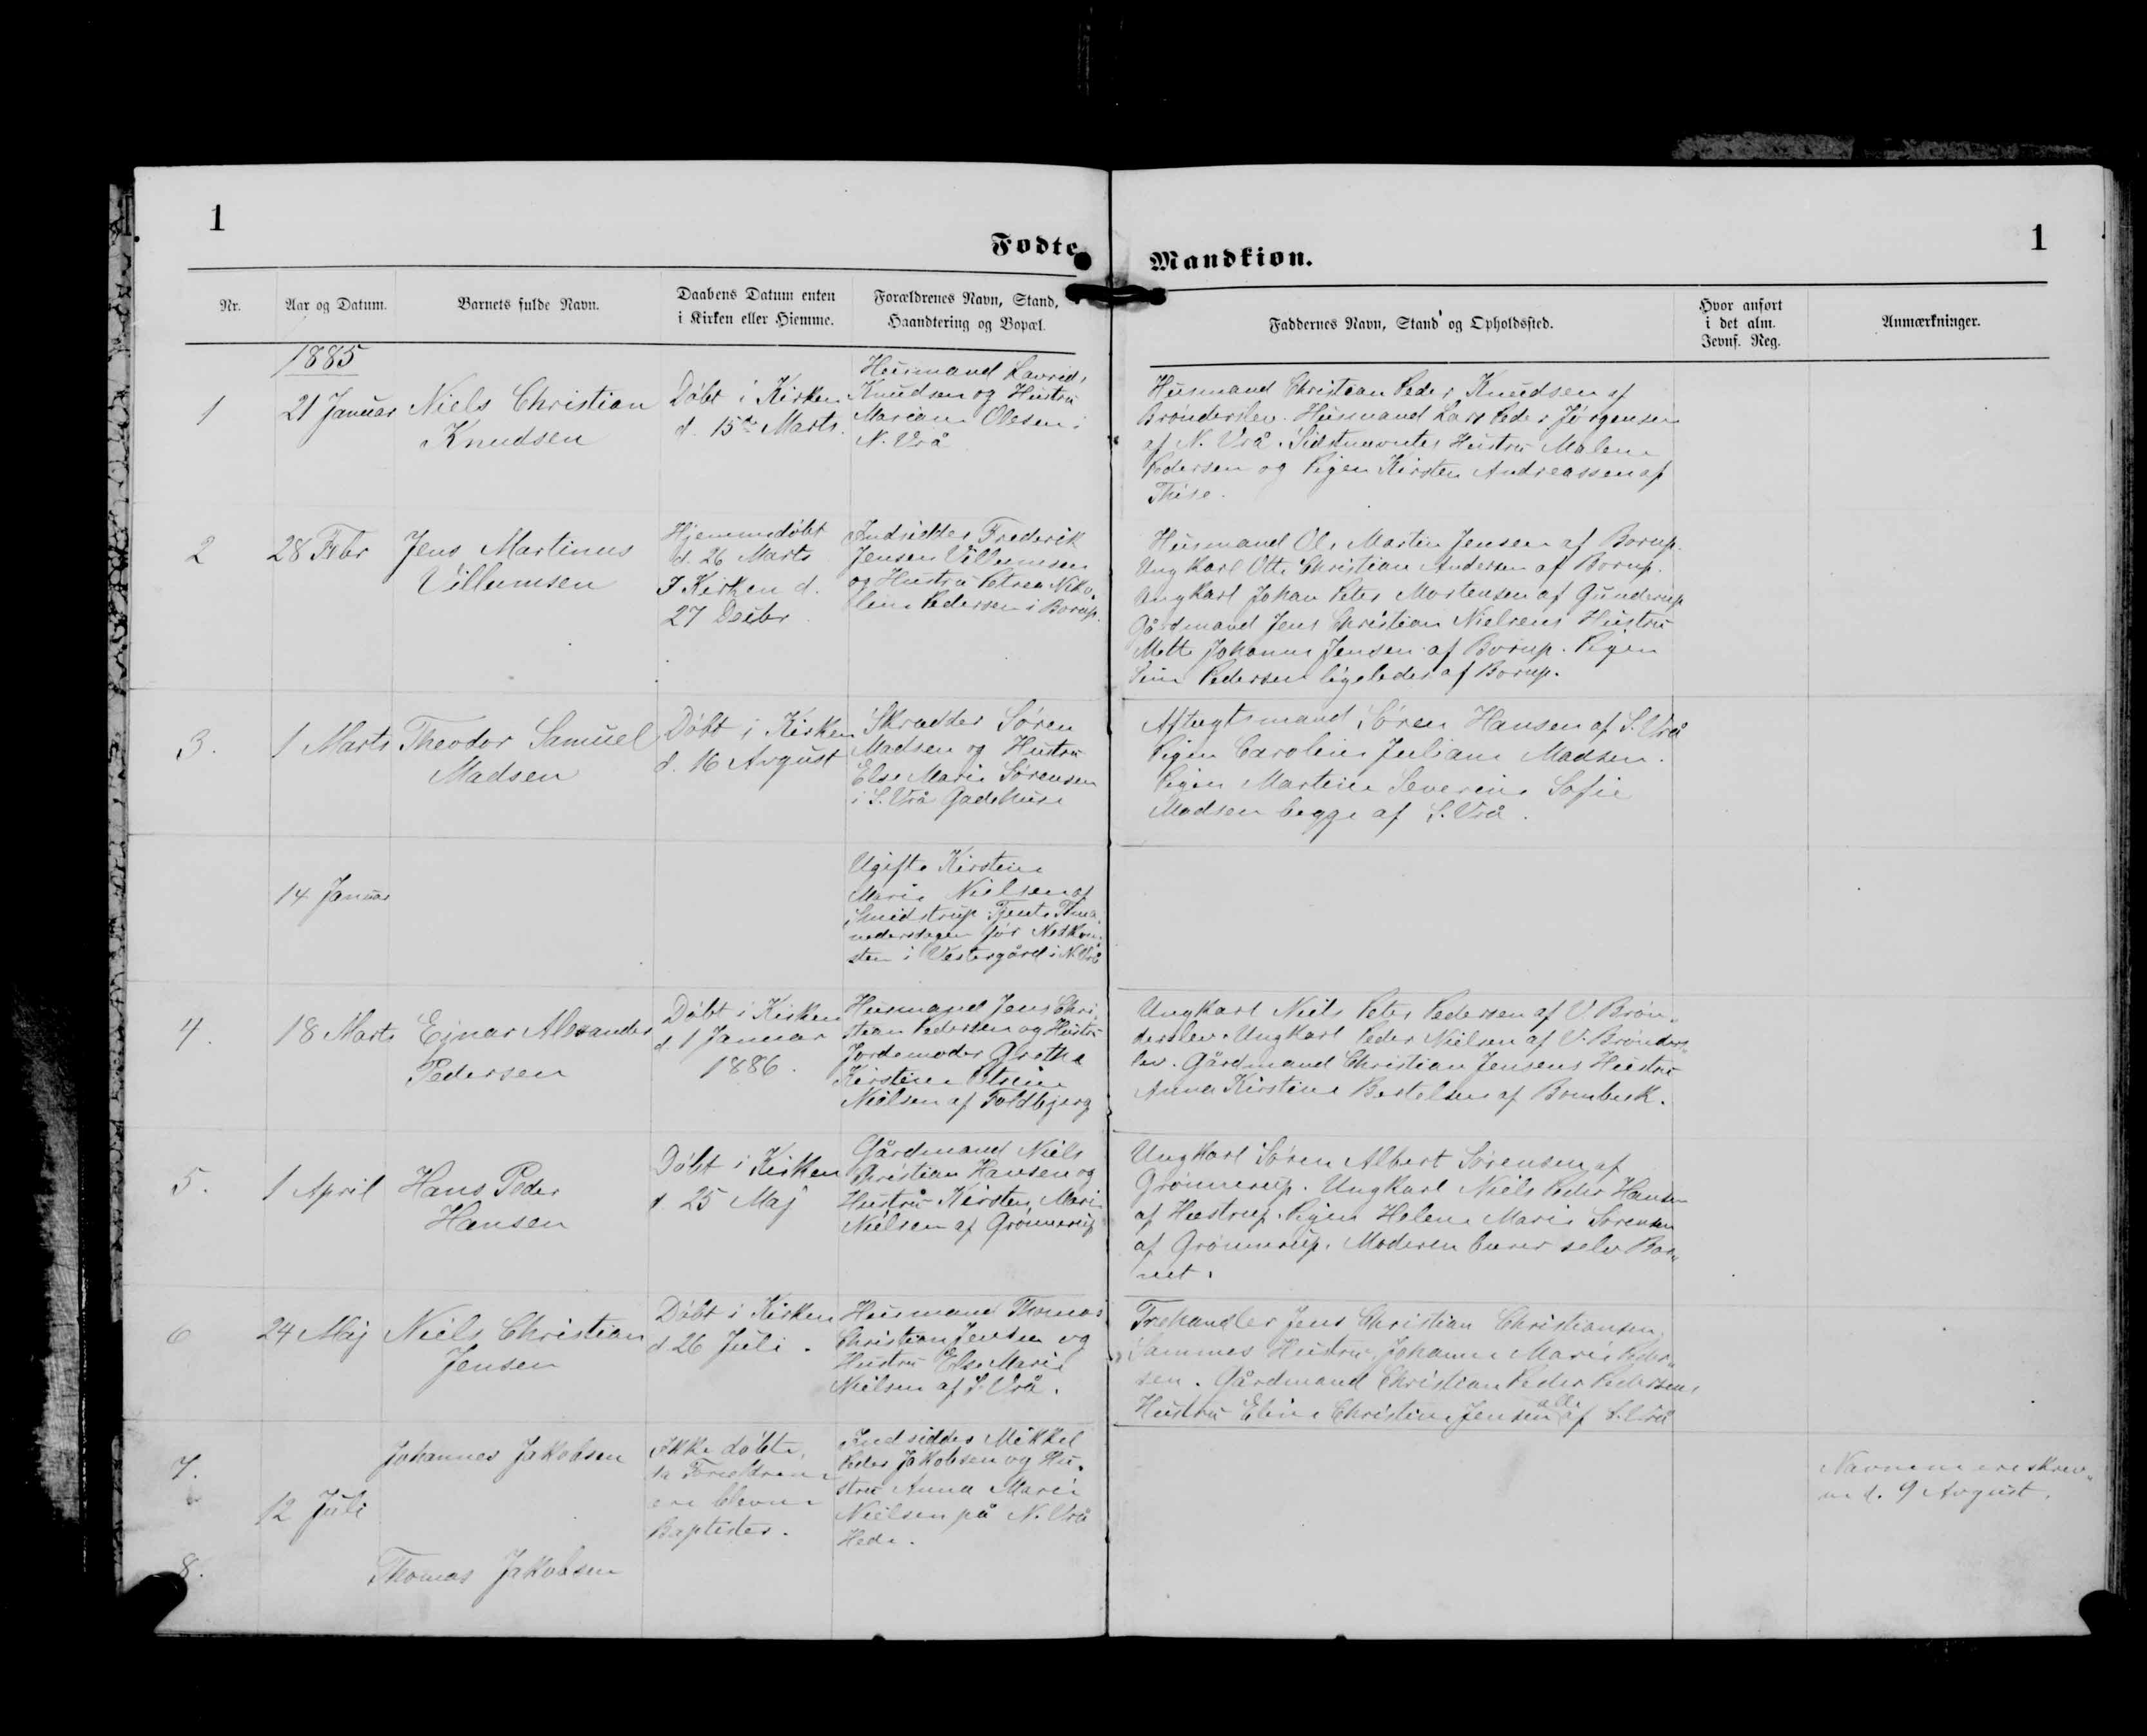 1
Fødte
Mandkiøn.
1
Nr.
Aar og Datum.
Barnets fulde Navn.
Daabens Datum enten
i Kirken eller Hiemme.
Forældrenes Navn, Stand,
Haandtering og Bopæl.
Faddernes Navn, Stand og Opholdssted.
Hvor anført
i det alm.
Jevnf. Reg.
Anmærkninger.
1885
1
21 Januar
Niels Christian
Knudsen
Døbt i Kirken
d. 15de Marts.
Husmand Lavrids
Knudsen og Hustru
Mariane Olesen i
N. Vrå
Husmand Christian Peder Knudsen af
Brønderslev. Husmand Lars Peder Jørgensen
af N. Vrå. Sidstnævntes Hustru Malene
Pedersen og Pigen Kirsten Andreassen af
Thise.
2
28 Febr
Jens Martinus
Villumsen
Hjemmedøbt
d. 26 Marts
I Kirken d.
27 Decbr
Indsidder Frederik
Jensen Villumsen
og Hustru Petrea Niko-
line Pedersen i Borup.
Husmand Ole Martin Jensen af Borup.
Ungkarl Otto Christian Andersen af Borup.
Ungkarl Johan Peter Mortensen af Gunderup
Gårdmand Jens Christian Nielsens Hustru
Mette Johanne Jensen af Borup. Pigen
Pedersen ligeledes af Borup.
3.
1 Marts
Theodor Samuel
Madsen
Døbt i Kirken
d. 16 Avgust
Skrædder Søren
Madsen og Hustru
Else Marie Sørensen
i S. Vrå Gadehuse
Aftægtsmand Søren Hansen af S. Vrå
Pigen Caroline Juliane Madsen.
Pigen Martine Severine Sofie
Madsen begge af S. Vrå.
14 Januar
Ugifte Kirstine
Marie Nielsen af
Smidstrup. Tjente
nedersdagen før Nedkom-
sten i Vestergård i N. Vrå
4.
18 Marts
Ejnar Alexander
Pedersen
Døbt i Kirken
d. 1 Januar
1886.
Husmand Jens Chri-
stian Pedersen og Hustru
Jordemoder Grethe
Kirstine Petrine
Nielsen af Foldbjerg
Ungkarl Niels Peter Pedersen af V. Brøn-
derslev. Ungkarl Peder Nielsen af V. Brønders-
lev. Gårdmand Christian Jensens Hustru
Anna Kirstine Bertelsen af Bombæk.
5.
1 April
Hans Peder
Hansen
Døbt i Kirken
d. 25 Maj
Gårdmand Niels
Christian Hansen og
Hustru Kirsten Marie
Nielsen af Grønnerup
Ungkarl Søren Albert Sørensen af
Grønnerup. Ungkarl Niels Peder Hansen
af Hæstrup. Pigen Helene Marie Sørensen
af Grønnerup. Moderen bærer selv Bar-
net.
6
24 Maj
Niels Christian
Jensen
Døbt i Kirken
d. 26 Juli.
Husmand Thomas
Christian Jensen og
Hustru Else Marie
Nielsen af S. Vrå.
Træhandler Jens Christian Christiansen,
Sammes Hustru Johanne Marie Peder-
sen. Gårdmand Christian Peder Pedersens
Hustru Eline Christine Jensen alle af S. Vrå
7.
12 Juli
Johannes Jakobsen
Ikke døbte,
da Forældrene
ere blevne
Baptister.
Indsidder Mikkel
Peder Jakobsen og Hu-
stru Anna Marie
Nielsen på N. Vrå
Hede.
Navnene ere skrev-
ne d. 9 Avgust.
8.
Thomas Jakobsen